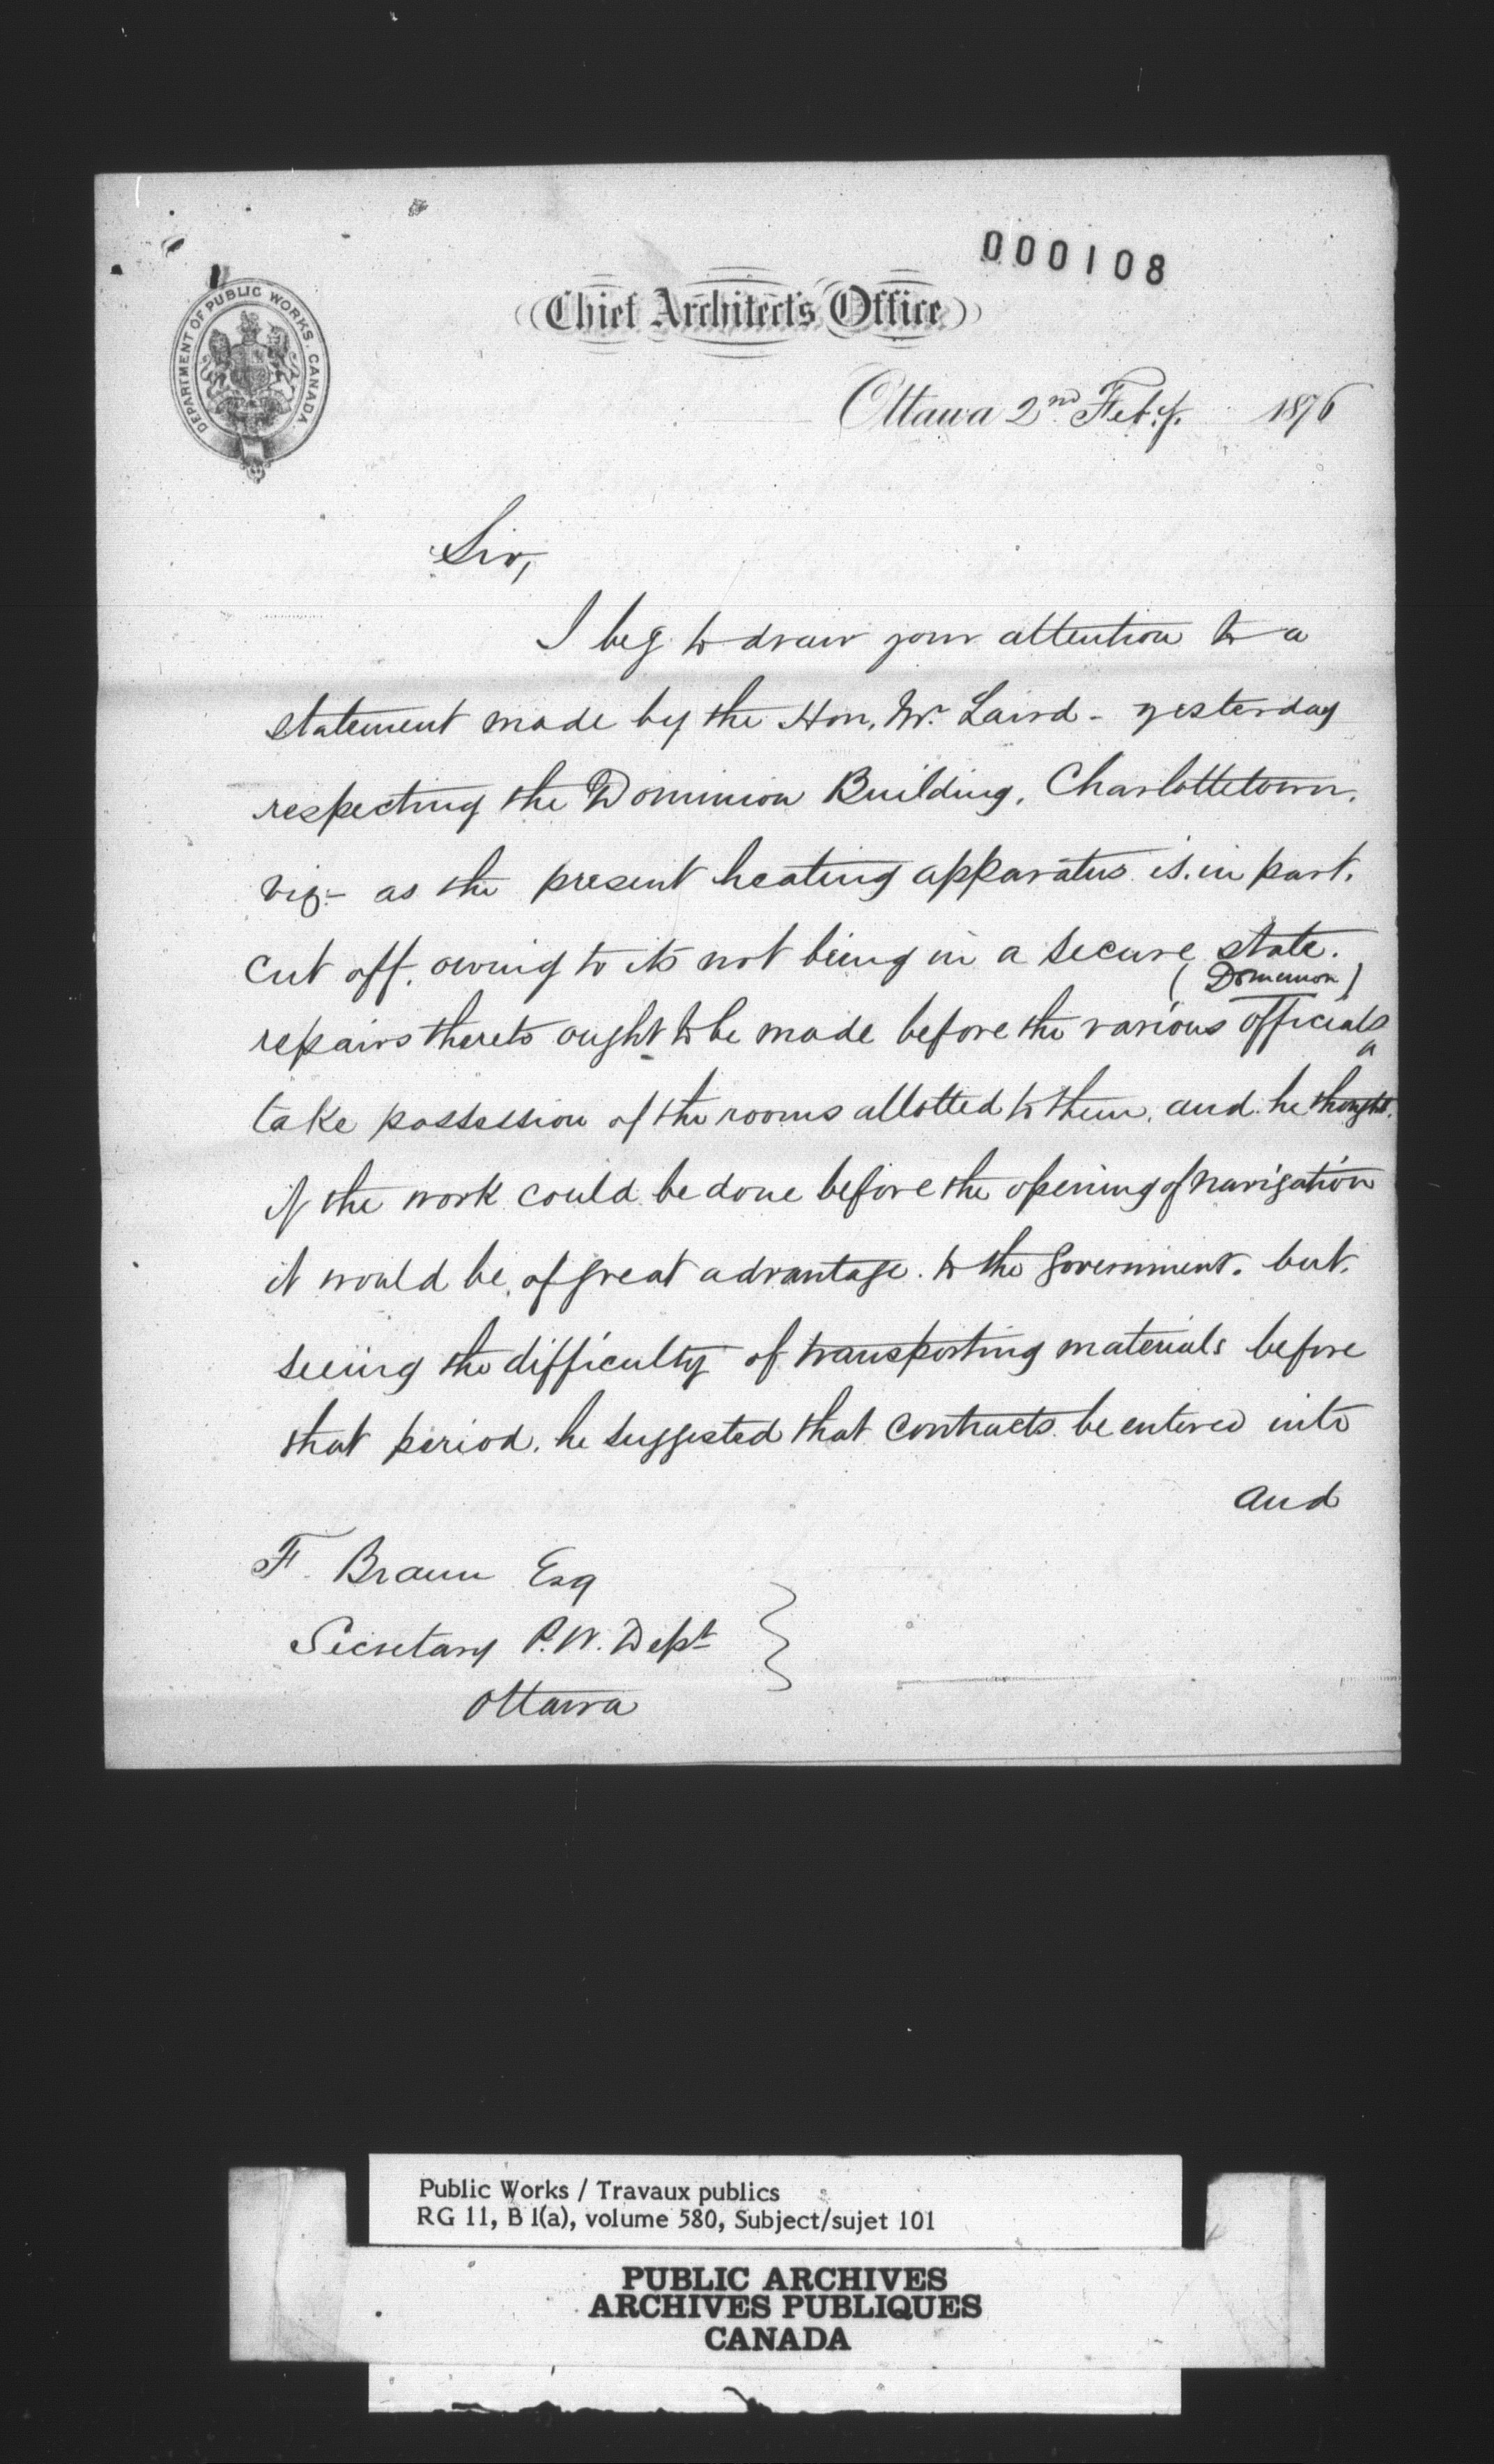 000108
DEPARTMENT OF PUBLIC WORKS. CANADA
Chief Architect's Office
Ottawa 2nd Feb.y. 1876
Sir,
I beg to draw your attention to a
statement made by the Hon. Mr. Laird - yesterday
respecting the Dominion Building, Charlottetown,
viz- as the present heating apparatus is. in part.
cut off. owing to its not being in a secure state.
(Dominion)
repairs thereto ought to be made before the various officials
take possession of the rooms allotted to them. and he thought.
if the work could be done before the opening of navigation
it would be, of great advantage. to the Government. but.
seeing the difficulty of transporting materials before
that period. he suggested that contracts be entered into
and
F. Braun Esq
Secretary P.W. Dept
Ottawa
Public Works / Travaux publics
RG 11, B 1(a), volume 580, Subject/sujet 101
PUBLIC ARCHIVES
ARCHIVES PUBLIQUES
CANADA